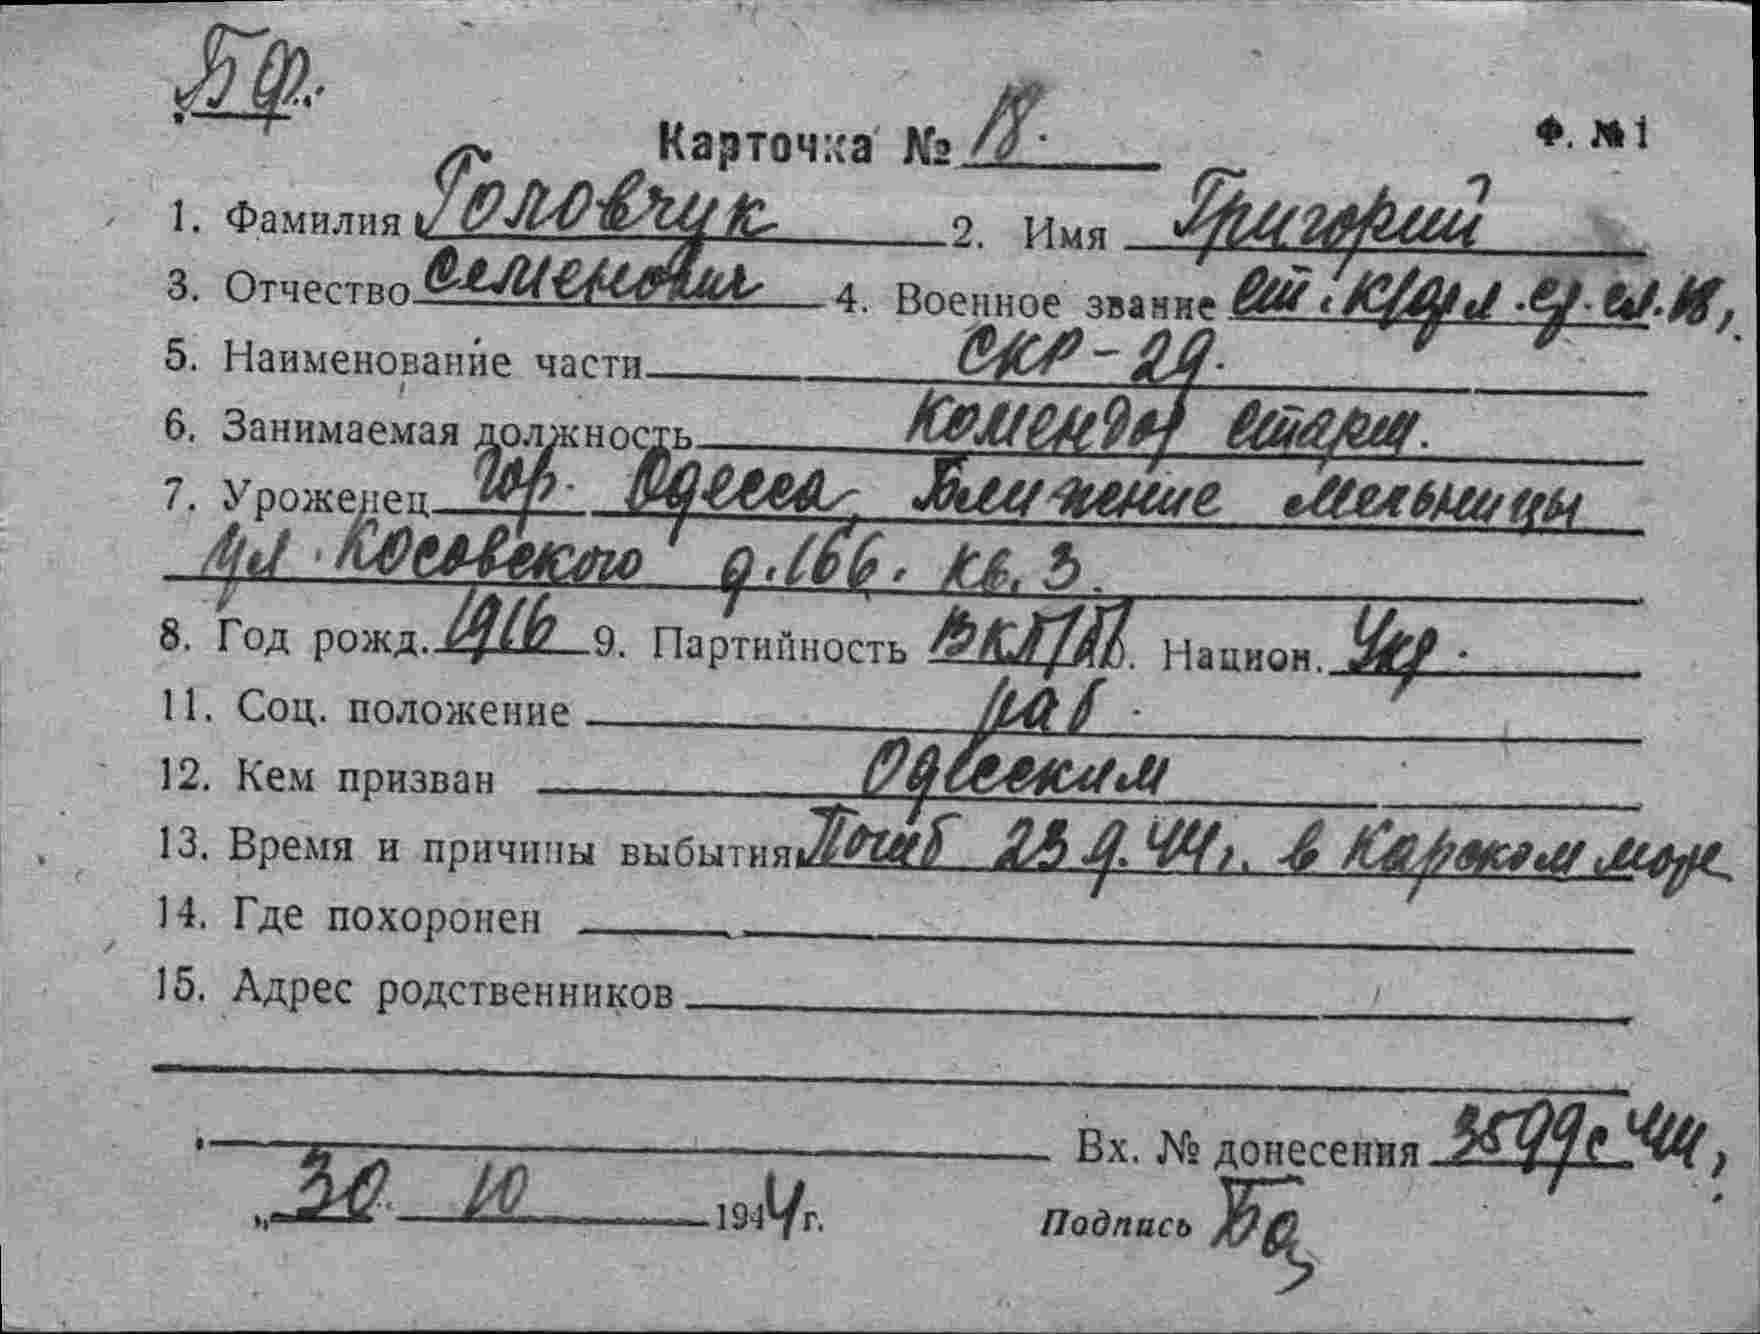 БФ.
Карточка № 18. Ф. № 1
1. Фамилия Головчук 2. Имя Григорий
3. Отчество Семенович 4. Военное звание Ст. к/фл. ср. сл.
5. Наименование части СКР-29.
6. Занимаемая должность Комендор старш.
7. Уроженец гор. Одесса, Ближение мельницы
ул. Косовского д. 166. кв. 3.
8. Год рожд. 1916 9. Партийность ВКП/б/. Национ. Укр.
11. Соц. положение раб.
12. Кем призван Одесским
13. Время и причины выбытия Погиб 23.9.44 г. в Карском море
14. Где похоронен
15. Адрес родственников
Вх. № донесения 3599с
„30. 10 1944 г. Подпись